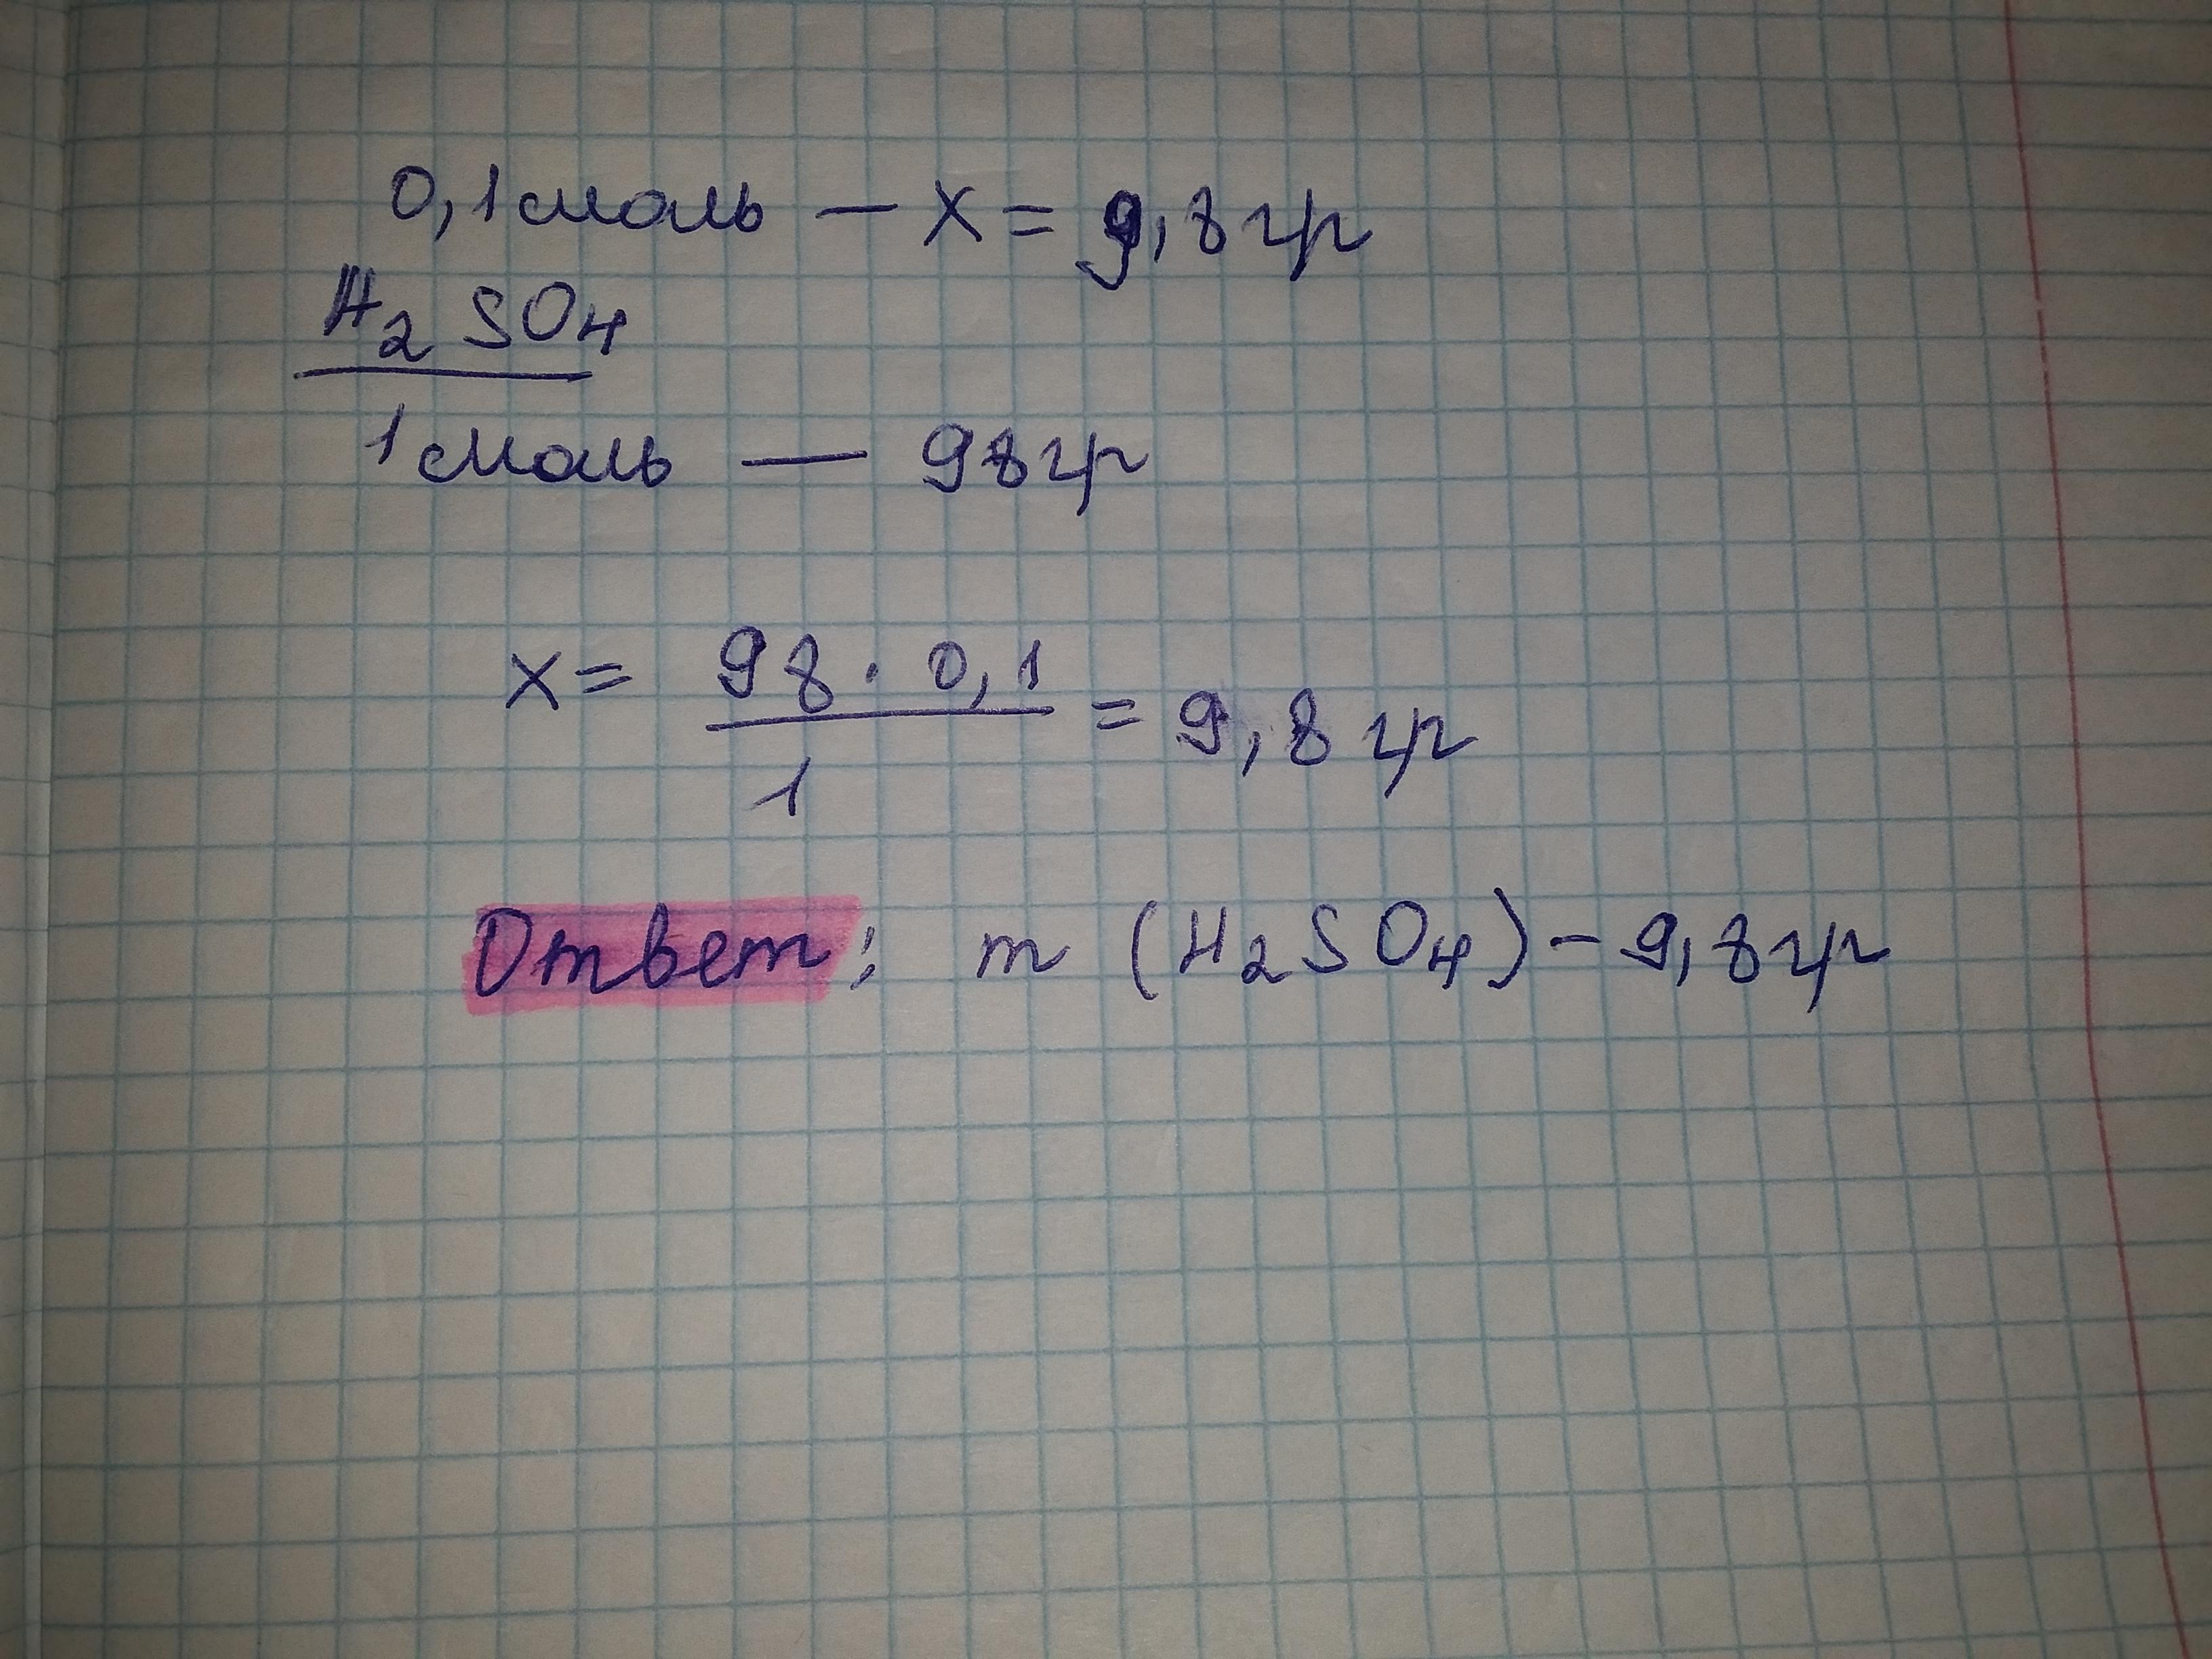 0,1 моль — x = 9,8 гр
H2SO4
1 моль — 98 гр
x = 98 · 0,1 / 1 = 9,8 гр
Ответ: m (H2SO4) – 9,8 гр